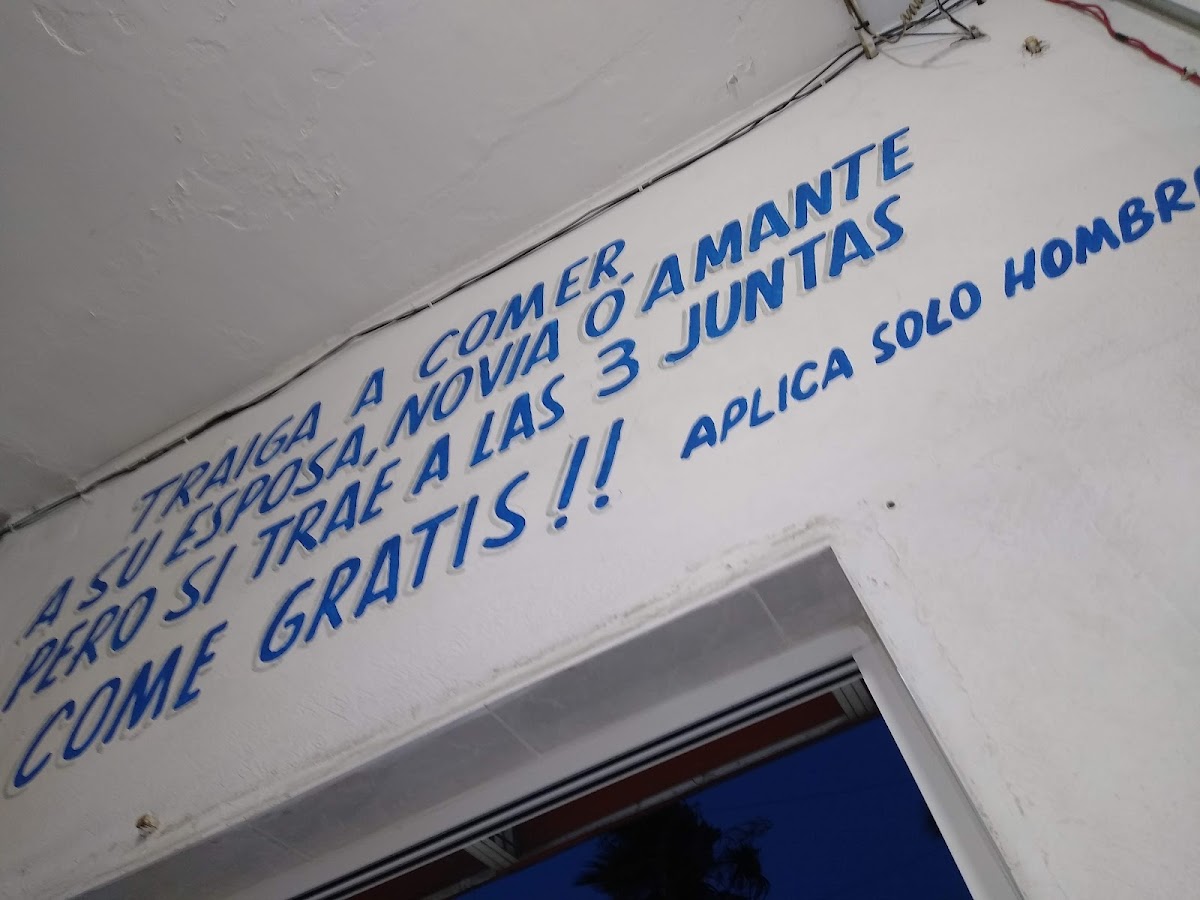 TRAIGA A COMER
A SU ESPOSA, NOVIA Ó AMANTE
PERO SI TRAE A LAS 3 JUNTAS
COME GRATIS!! APLICA SOLO HOMBRE